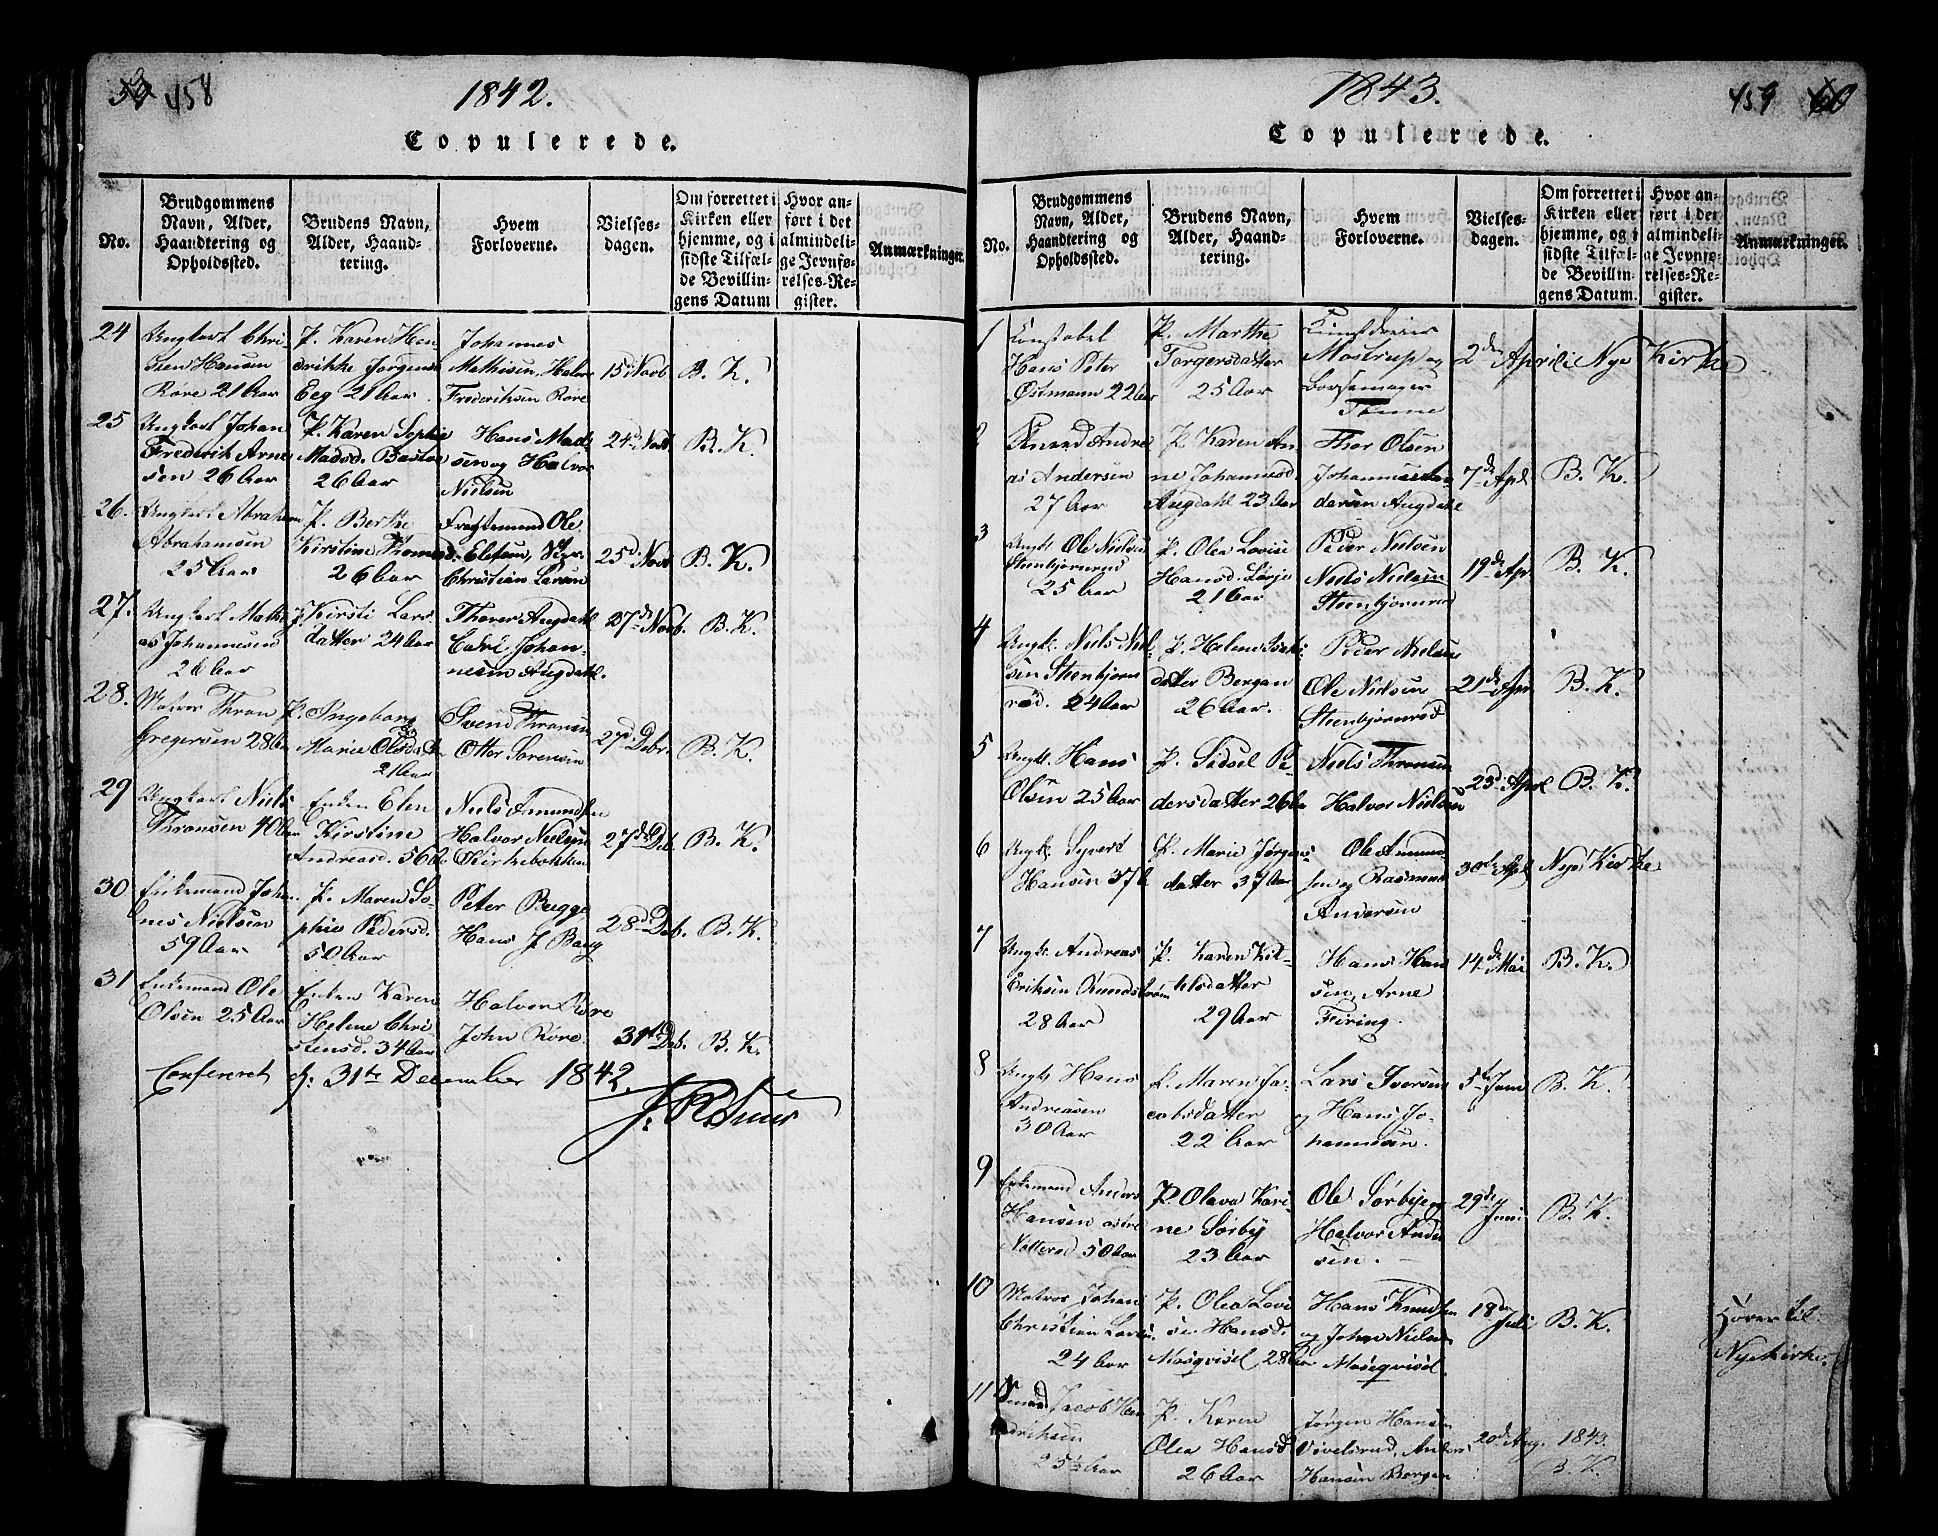 458
1842.
Copulerede.
No.
Brudgommens Navn, Alder, Haandtering og Opholdssted.
Brudens Navn, Alder, Haandtering.
Hvem Forloverne.
Vielsesdagen.
Om forrettet i Kirken eller hjemme, og i sidste Tilfælde Bevillingens Datum
Hvor anført i det almindelige Jevnførelses-Register.
Anmærkninger.
24
Ungkarl Christen Hansen Røre 21 Aar
P. Karen Hendrikke Jørgensd Eeg 21 Aar.
Johannes Mathisen, Halvor Frederiksen Røre
15d Novb
B. K.
25
Ungkarl Johan Frederik Arnesen 26 Aar
P. Karen Sophie Madsd. Bastø 26 Aar
Hans Madsen og Halvor Nielsen
24d Novb
B. K.
26.
Ungkarl Abraham Abrahamsen 25 Aar
P. Berthe Kirstine Thomasd. 26 Aar
Ole Christian Larsen
25d. Novb
B. K.
27.
Ungkarl Mathias Johannesen 26 Aar
P. Kirsti Larsdatter 24 Aar
Thorer Augdahl Carl Johannesen Augdahl.
27de Novb.
B. K.
28.
Matros Thron Gregersen 28 Aar
P. Ingeborg Marie Olsdatter 21 Aar
Svend Thronsen Otter Sørensen
27d. Debr.
B. K.
29
Ungkarl Niels Thronsen 40 Aar
Enken Elen Kirstine Andreasd. 56 A.
Niels Amundsen Halvor Nielsen Kirkebakken
27de Deb.
B. K.
30
Enkemand Johannes Nielsen 59 Aar
P. Maren Sophie Pedersd. 50 Aar
Peter Bugge Hans J Bang
28d. Deb.
B. K.
31
Enkemand Ole Olsen 25 Aar
Enken Karen Helene Christensd. 34 Aar
Halvor Røre John Røre
31te Deb.
B. K.
Confereret d: 31te December 1842.
459
1843.
Copulerede.
No.
Brudgommens Navn, Alder, Haandtering og Opholdssted.
Brudens Navn, Alder, Haandtering.
Hvem Forloverne.
Vielsesdagen.
Om forrettet i Kirken eller hjemme, og i sidste Tilfælde Bevillingens Datum.
Hvor anført i det almindelige Jevnførelses-Register.
Anmærkninger.
1
Constabel Hans Peter Østmann 22 Aar
P. Marthe Torgersdatter 25 Aar
Mostrup og
2den April i Nye Kirke
2
Andreas Andersen 27 Aar
P. Karen Anne Johannesd Augdahl 23 Aar
Thor Olsen Augdahl
7de Apl
B. K.
3
Ungk. Ole Nielsen Steenbjørnrød 25 Aar
P. Olea Lovise Hansd. 21 Aar
Peder Nielsen Niels Nielsen Steenbjørnrød
19de Apr
B. K.
4
Ungk. Niels Nielsen Steenbjørnrød. 24 Aar
P. Helene datter Bergan 26 Aar.
Peder Nielsen Ole Nielsen Steenbjørnrød
21de Apr
B. K.
5
Ungk. Hans Olsen 25 Aar
P. Sidsel Pedersdatter 26 Aar
Niels Thronsen Halvor Nielsen
23d. April
B. K.
6
Ungk. Syvert Hansen 37 A
P. Marie Jørgensdatter 37 Aar
Ole Amundsen og Rasmus Andersen
30te Apl
Nye Kirke
7
Ungk. Andreas Eriksen Rundstrøm 28 Aar
P. Karen Kittelsdatter 29 Aar
Hans Hansen, Arne Feiring.
14de Mai
B. K.
8
Ungk Hans Andreasen 30 Aar
P. Maren Jacobsdatter 22 Aar
Lars Iversen og Hans Johannesen.
5te Juni
B. K.
9
Enkemand Anders Hansen østre Nøtterød 50 Aar
P. Olava Karine Sørby 23 Aar
Ole Sørbye og Halvor Andersen.
29de Juni
B. K.
10
Matros Johan Christian 24 Aar
P. Olea Lovise Hansd. Møsqvisel 28 Aar
Hans Knudsen og Johan Nielsen Møsqvisel.
18de Juli
B. K.
Hører til Nyekirke.
11
Jacob Hendriksen 25½ Aar
P. Karen Olea Hansd 26 Aar
Jørgen Hansen Anders Hansen Borgen
20d Aug. 1843.
B. K.